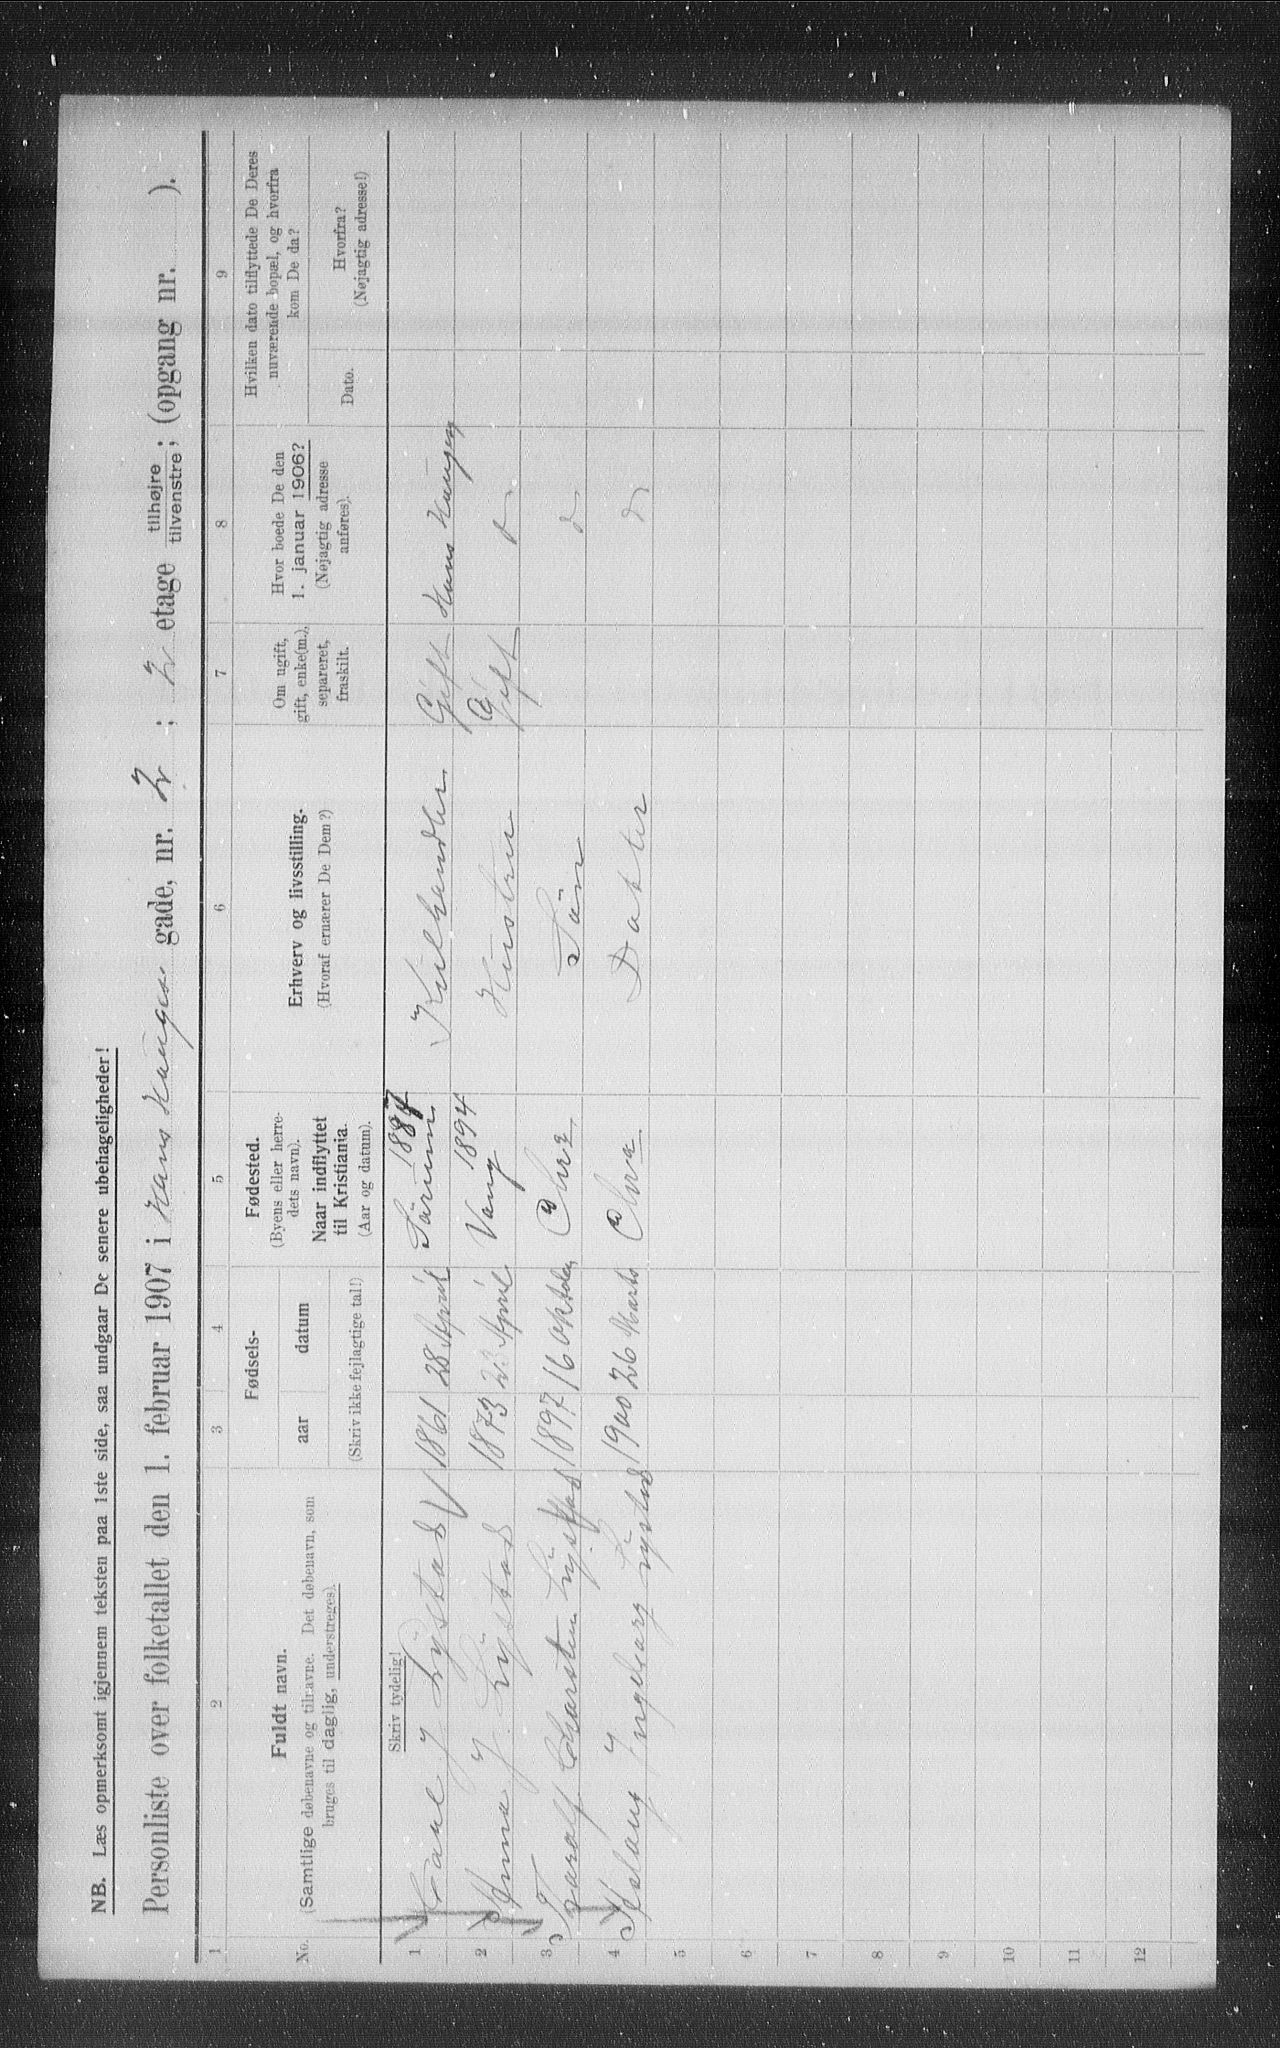 NB. Læs opmerksomt igjennem teksten paa 1ste side, saa undgaar De senere ubehageligheder!
Personliste over folketallet den 1. februar 1907 i Hans Hauges gade, nr. 2 ; 2 etage tilhøjre / tilvenstre ; (opgang nr. ).
1 2 3 4 5 6 7 8 9
No.
Fuldt navn.
(Samtlige døbenavne og tilnavne. Det døbenavn, som
bruges til daglig, understreges).
Fødsels-
aar datum
(Skriv ikke fejlagtige tal!)
Fødested.
(Byens eller herre-
dets navn).
Naar indflyttet
til Kristiania.
(Aar og datum).
Erhverv og livsstilling.
(Hvoraf ernærer De Dem?)
Om ugift,
gift, enke(m.),
separeret,
fraskilt.
Hvor boede De den
1. januar 1906?
(Nøjagtig adresse
anføres).
Hvilken dato tilflyttede De Deres
nuværende bopæl, og hvorfra
kom De da?
Dato.
Hvorfra?
(Nøjagtig adresse!)
Skriv tydelig!
1 Paul J Lystad 1861 28 April Sörum 1887 Kulhandler Gift Hans Hauges
2 Anna J. Lystad 1873 23 April Vang 1894 Hustru Gift d
3 Toralf Lystad 1897 16 Oktober Chra Sön d
4 Aslaug Ingeborg Lystad 1900 26 Marts Chra Datter d
5
6
7
8
9
10
11
12